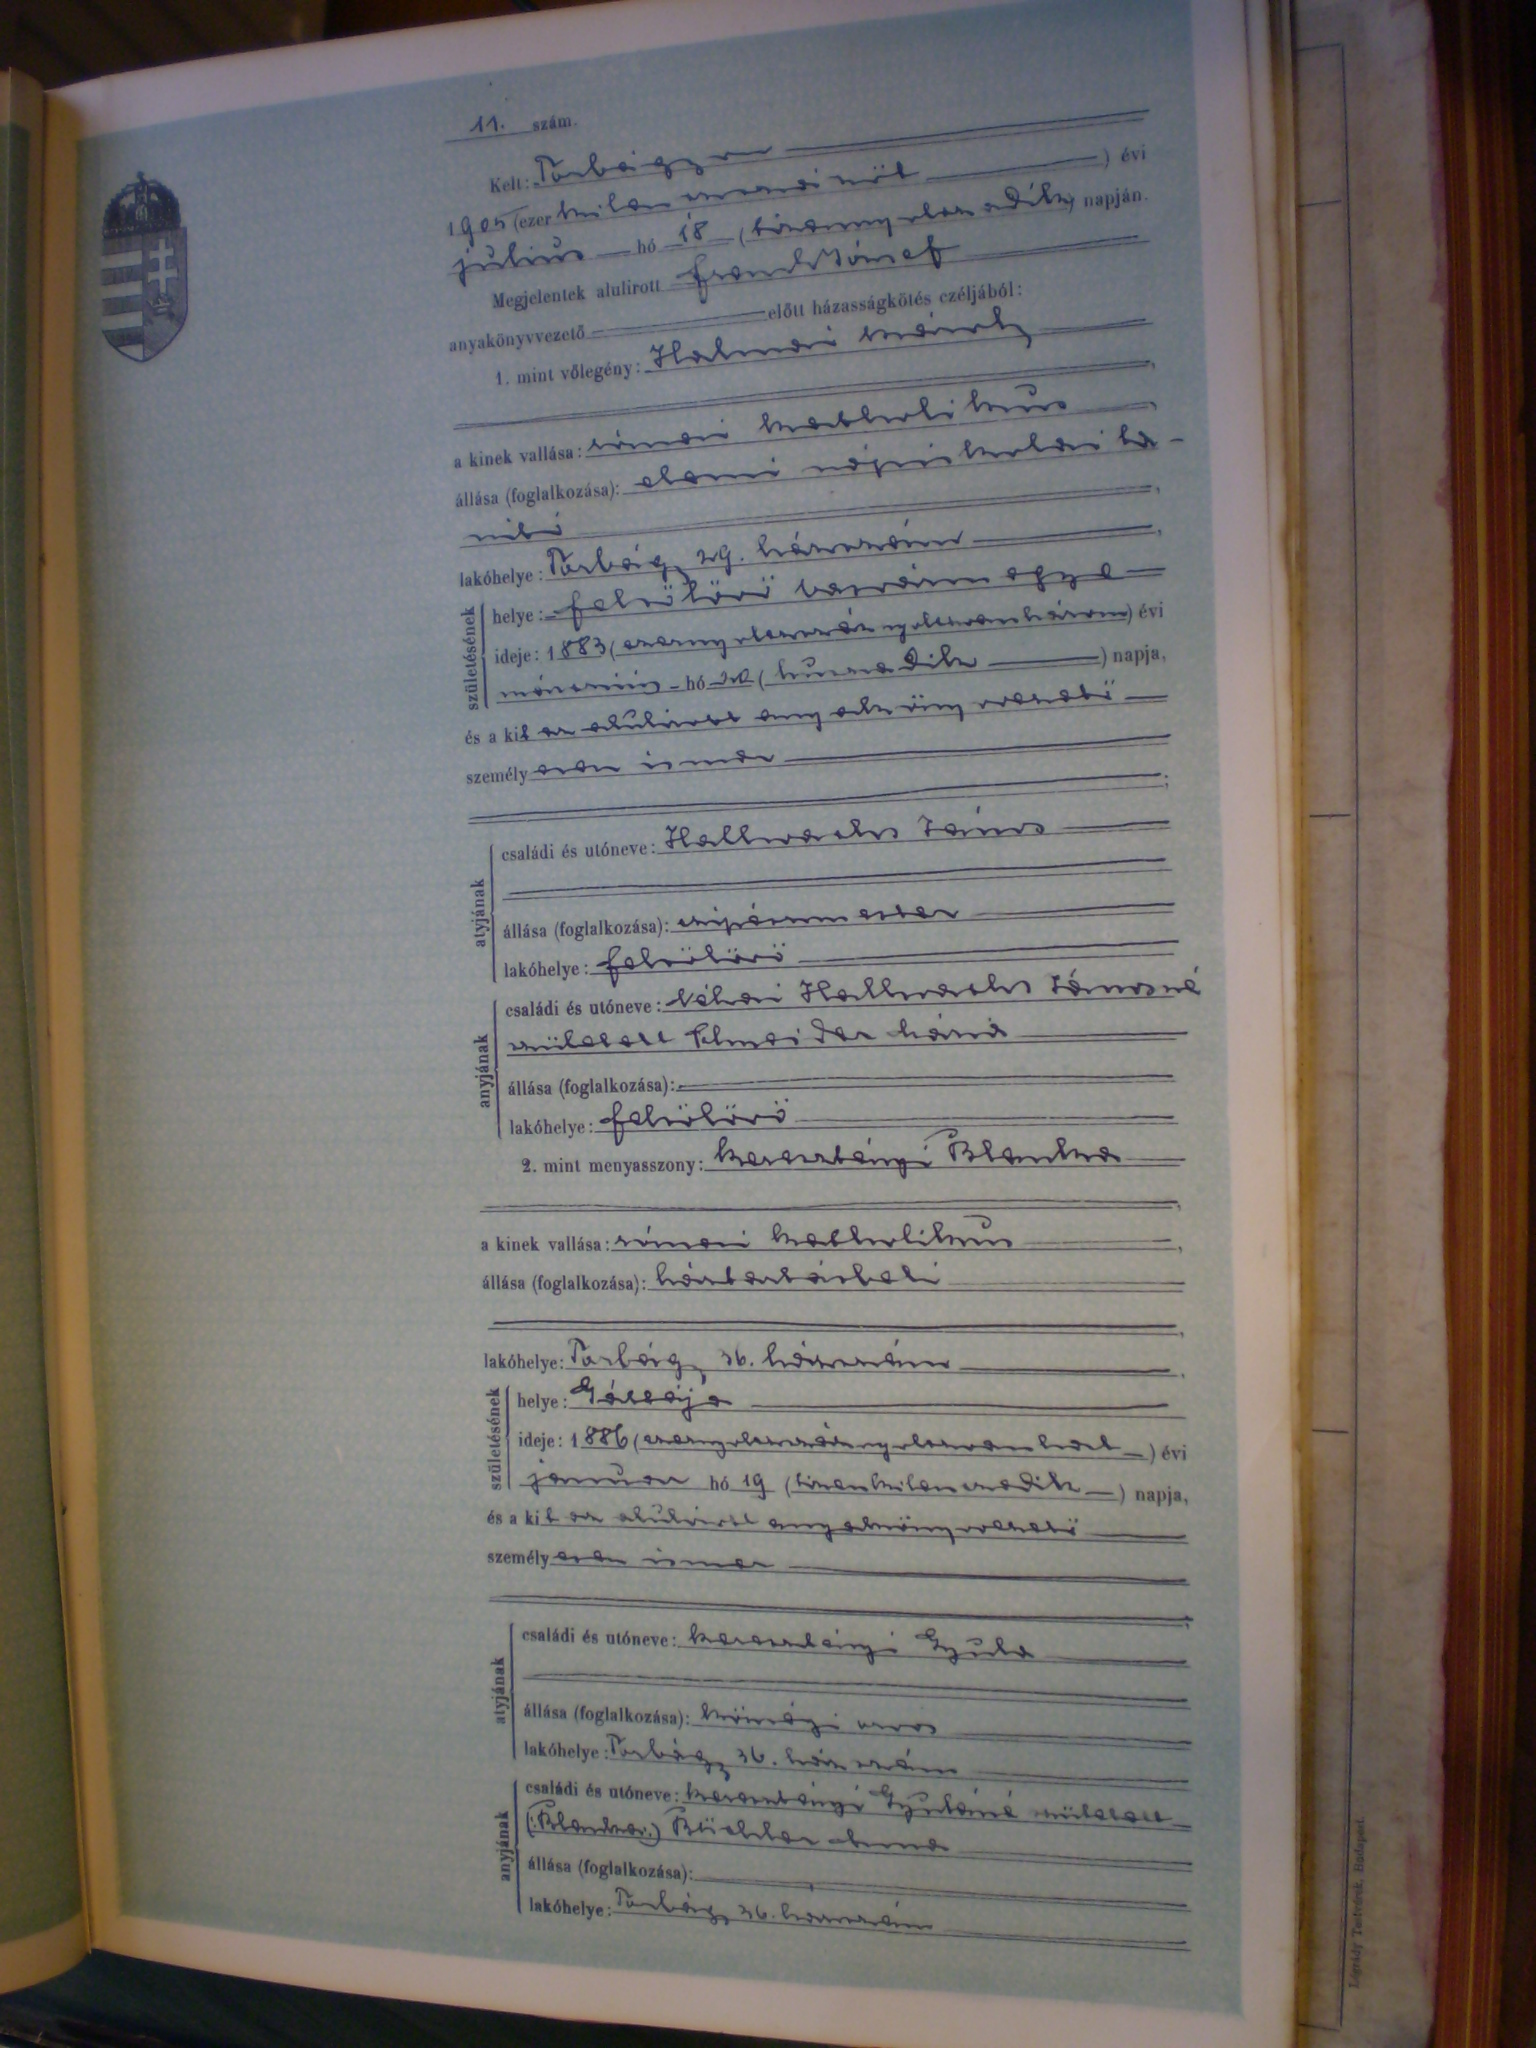 11. szám.
Kelt: Torbágyon
1905 (ezer kilenczszázöt) évi
július hó 18 (tizennyolczadik) napján.
Megjelentek alulirott Frank József
anyakönyvvezető előtt házasságkötés czéljából:
1. mint vőlegény: Halmai Károly
a kinek vallása: római katholikus
állása (foglalkozása): elemi népiskolai ta-
nító
lakóhelye: Torbágy 29. házszám
születésének
helye: Felsőlövő vasvármegye
ideje: 1883 (ezernyolczszáznyolczvanhárom) évi
hó 20 (huszadik) napja,
és a kit az alulirott anyakönyvvezető
személyesen ismer
;
atyjának
családi és utóneve: Hallwachs János
állása (foglalkozása): czipészmester
lakóhelye: Felsőlövő
anyjának
családi és utóneve: Néhai Hallwachs Jánosné
született
állása (foglalkozása):
lakóhelye: Felsőlövő
2. mint menyasszony: Keresztényi Blanka
a kinek vallása: római katholikus
állása (foglalkozása): háztartásbeli
lakóhelye: Torbágy 36. házszám
születésének
helye:
ideje: 1886 (ezernyolczszáznyolczvanhat) évi
január hó 19 (tizenkilenczedik) napja,
és a kit az alulirott anyakönyvvezető
személyesen ismer
;
atyjának
családi és utóneve: Keresztényi Gyula
állása (foglalkozása): községi orvos
lakóhelye: Torbágy 36. házszám
anyjának
családi és utóneve: Keresztényi Gyuláné született
(:Blanka:)
állása (foglalkozása):
lakóhelye: Torbágy 36. házszám
Légrády Testvérek, Budapest.